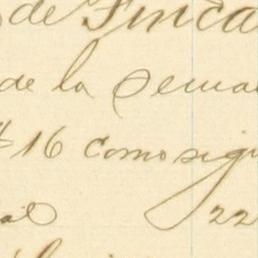 de Finca
de la sema
# 16 como sigu
22